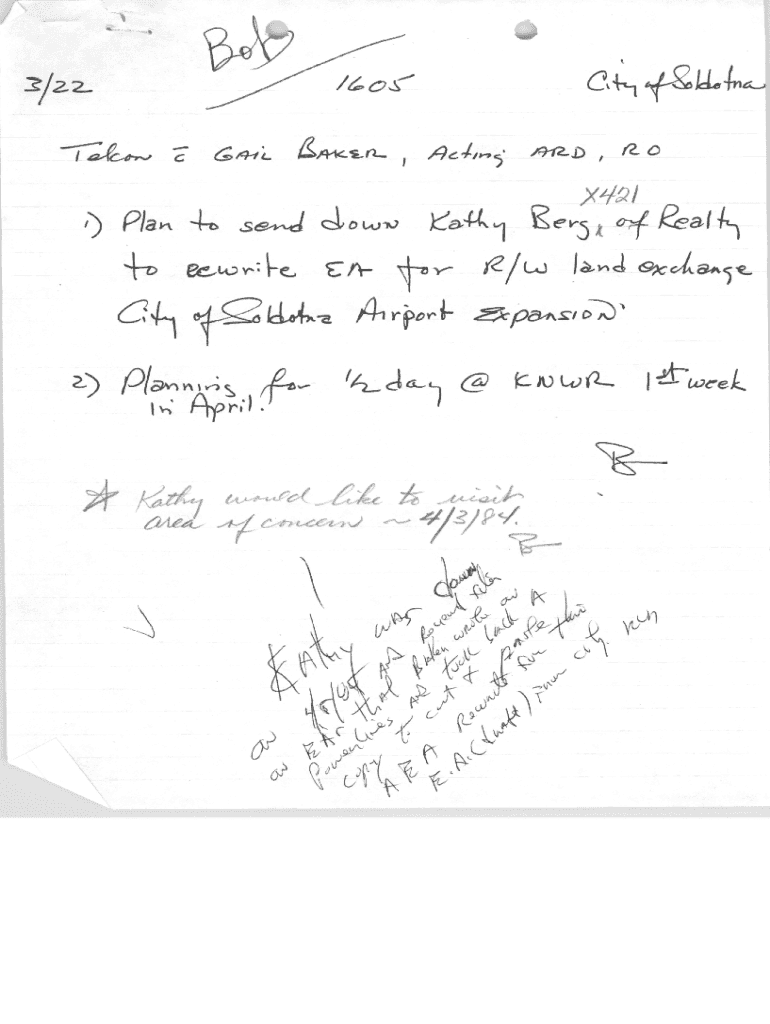 Bob
3/22 1605 City of Soldotna
Telcon c̄ GAIL BAKER, Acting ARD, RO
X421
1) Plan to send down Kathy Berg, of Realty
to rewrite EA for R/W land exchange
City of Soldotna Airport Expansion.
2) Planning for 1/2 day @ KNWR 1st week
in April.
B
* Kathy would like to visit
area of concern ~ 4/3/84.
B
Kathy was down
on and
on EAs that wrote on
Powerlines and took back A
copy to cut & paste
A E A for this
E.A. (draft) from city.